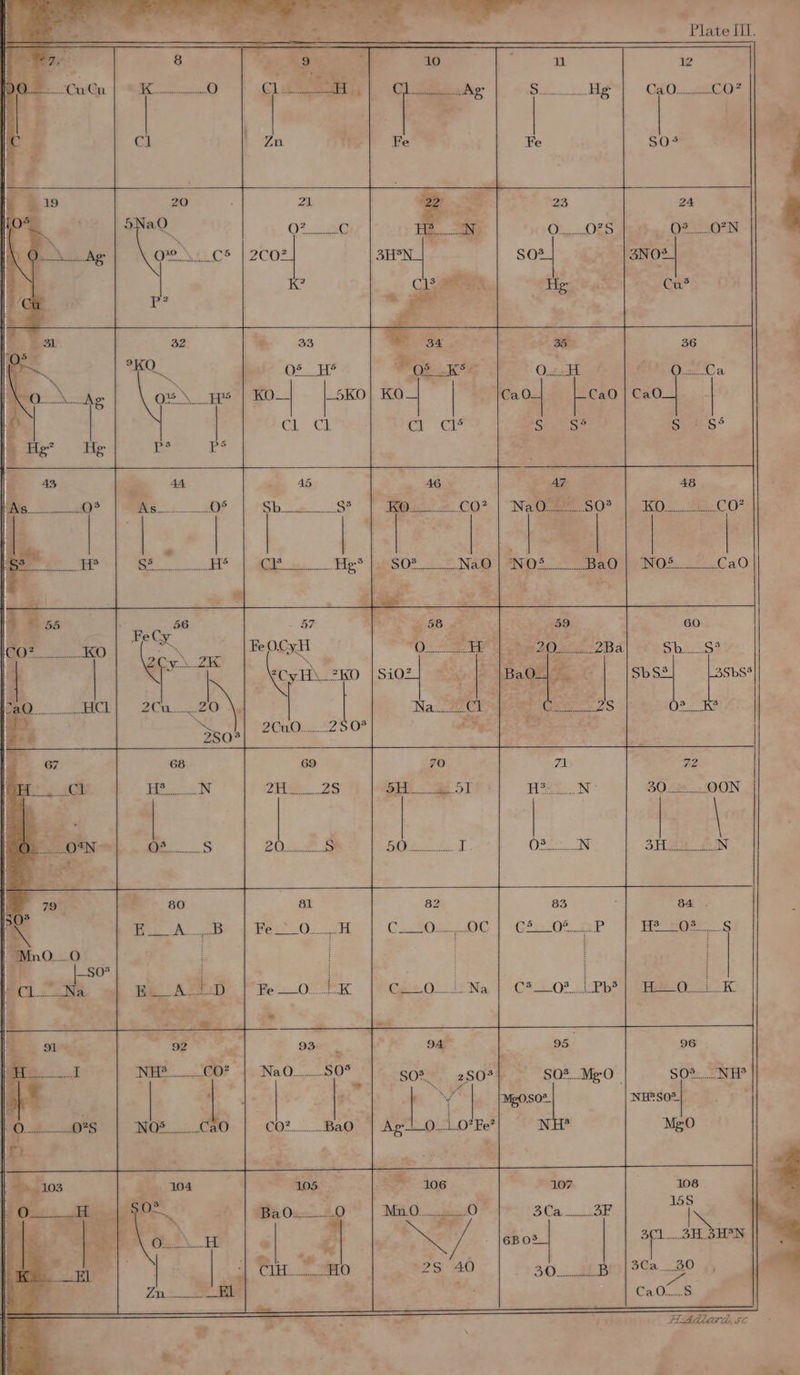 Plate III.
7. 8 9 10 11 12
CuCu K O Cl H Cl Ag S Hg CaO CO²
C Cl Zn Fe Fe SO³
19 20 21 22 23 24
5NaO O² C H³ N O O²S O² O²N
O Ag O¹⁰ C⁵ 2CO² 3H³N SO³ 3NO⁵
Cu P² K² Cl³ Hg Cu³
31 32 33 34 35 36
O⁵ ⁹KO O⁵ H⁵ O⁵ K⁵ O H O Ca
O Ag O¹⁵ H¹⁵ KO 5KO KO CaO CaO CaO
Cl Cl Cl Cl⁵ S S⁵ S S⁵
Hg² Hg P³ P⁵
43 44 45 46 47 48
As O³ As O⁵ Sb S³ KO CO² NaO SO³ KO CO²
S³ H³ S⁵ H⁵ Cl³ Hg³ SO³ NaO NO⁵ BaO NO⁵ CaO
55 56 57 58 59 60
CO² KO FeCy FeOCyH O H 2O 2Ba Sb S³
2Cy 2K ²CyH ²KO SiO² BaO SbS³ 3SbS³
HCl 2Cu 2O Na Cl C 2S O³ K³
2SO³ 2CuO 2SO³
67 68 69 70 71 72
H Cl H³ N 2H 2S 5H 5I H³ N 3O OON
O O⁴N O³ S 2O S 5O I O³ N 3H N
79 80 81 82 83 84
SO³ E A B Fe O H C O OC C³ O⁶ P H³ O³ S
MnO O
SO³
Cl Na E A D Fe O K C O Na C³ O³ Pb³ H O K
91 92 93 94 95 96
H I NH³ CO² NaO SO³ SO³ 2SO³ SO³ MgO SO³ NH³
MgOSO³ NH³SO³
O O²S NO⁵ CaO CO² BaO Ag O O²Fe² NH³ MgO
103 104 105 106 107 108
O H SO³ BaO O MnO O 3Ca 3F 15S
O H 6BO³ 3Cl 3H 3H³N
K El ClH HO 2S 4O 3O B 3Ca 3O
Zn El CaO S
H. Adlard, sc